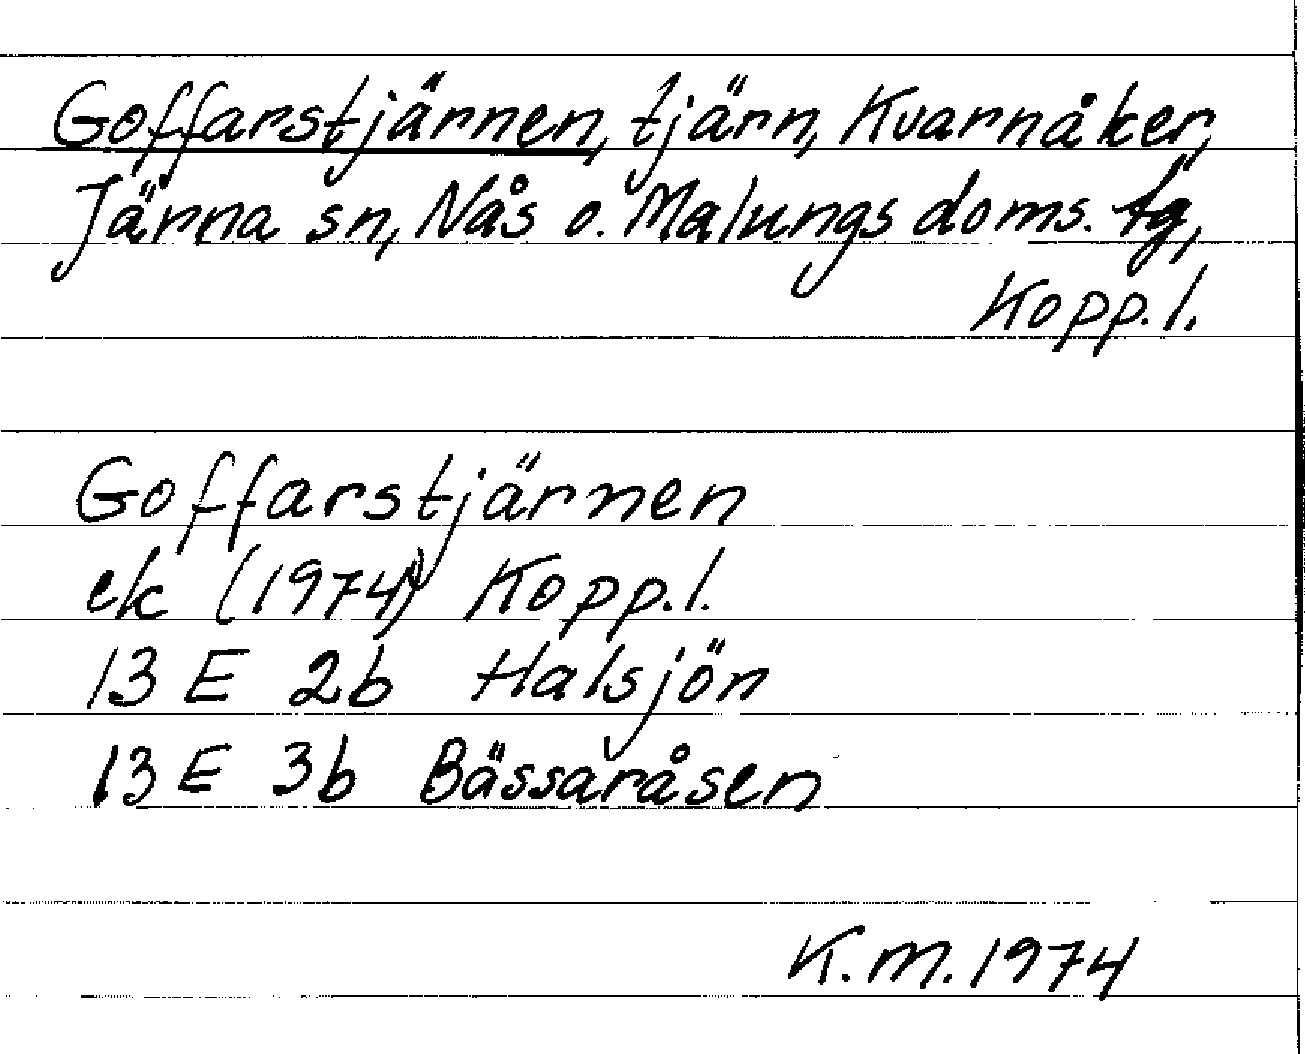 Goffarstjärnen, tjärn, Kvarnåker,
Järna sn, Nås o. Malungs doms. tg,
Kopp.l.
Goffarstjärnen
ek (1974) Kopp.l.
13 E 2b Halsjön
13 E 3b Bässaråsen
K.M. 1974